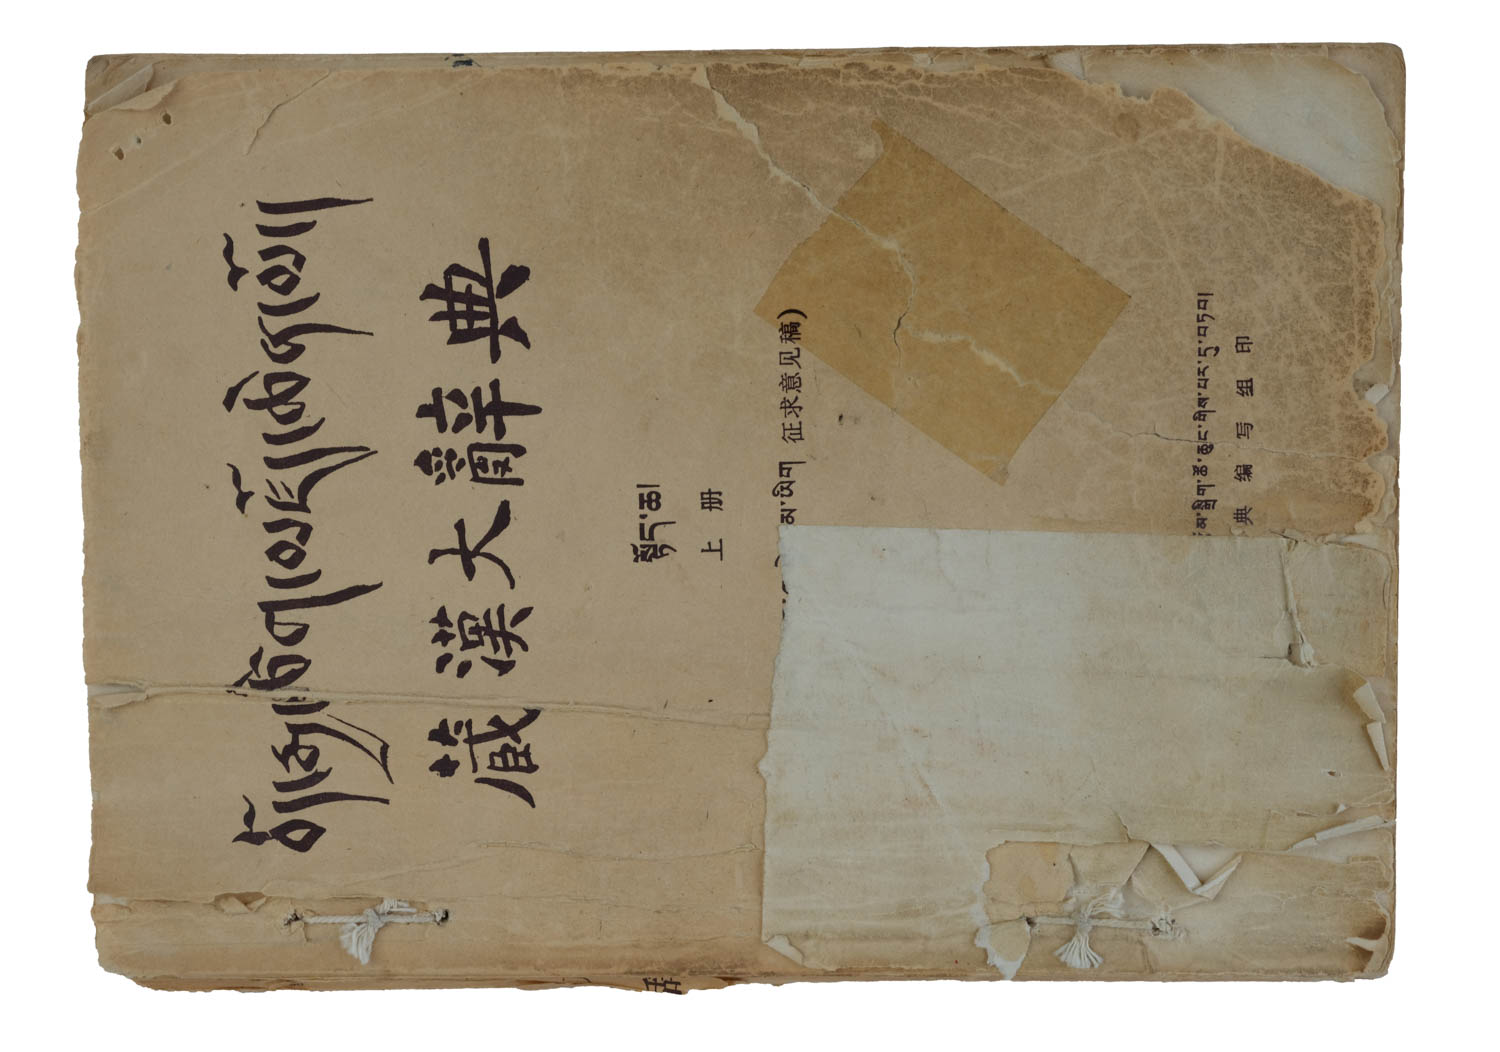 བོད་རྒྱ་ཚིག་མཛོད་ཆེན་མོ།
藏漢大辭典
སྟོད་ཆ།
上册
མ་ཡིག 征求意见稿)
སྒྲིག་ཚོ་ཆུང་གིས་པར་དུ་བཏབ།
典编写组印